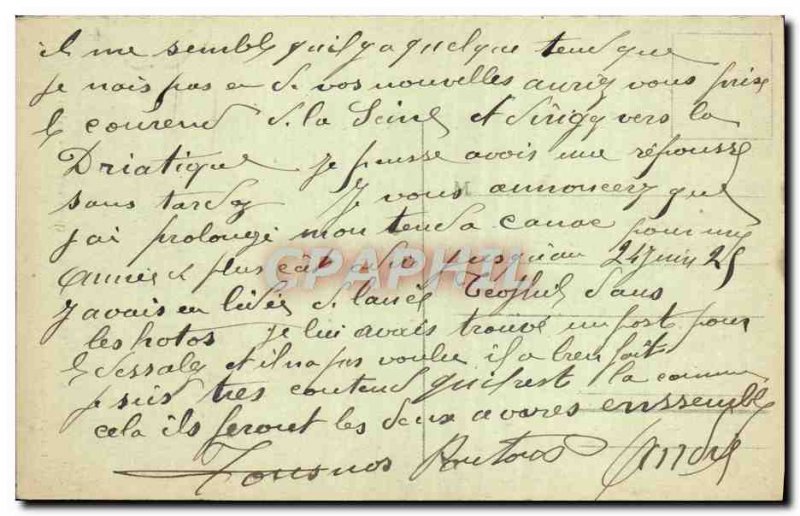 il me semble quil ya quelque tend que
je nais pas eu de vos nouvelles auriez vous prise
le courend de la Seine et dirigé vers la
Driatique je pensse avois une réponsse
sans tardez je vous annoncez que
j'ai prolongé mon tend a canac pour une
année plus jusquau 24 juin 25
j'avais eu lidée d'lancé Teoffil dans
les hotos je lui avais trouvé un post pour
le et il na pas voulu il a bien fait
je suis tres contend quil rest la comme
cela ils feront les deux avares enssemble
Tousnos Bontous André
CPAPHIL